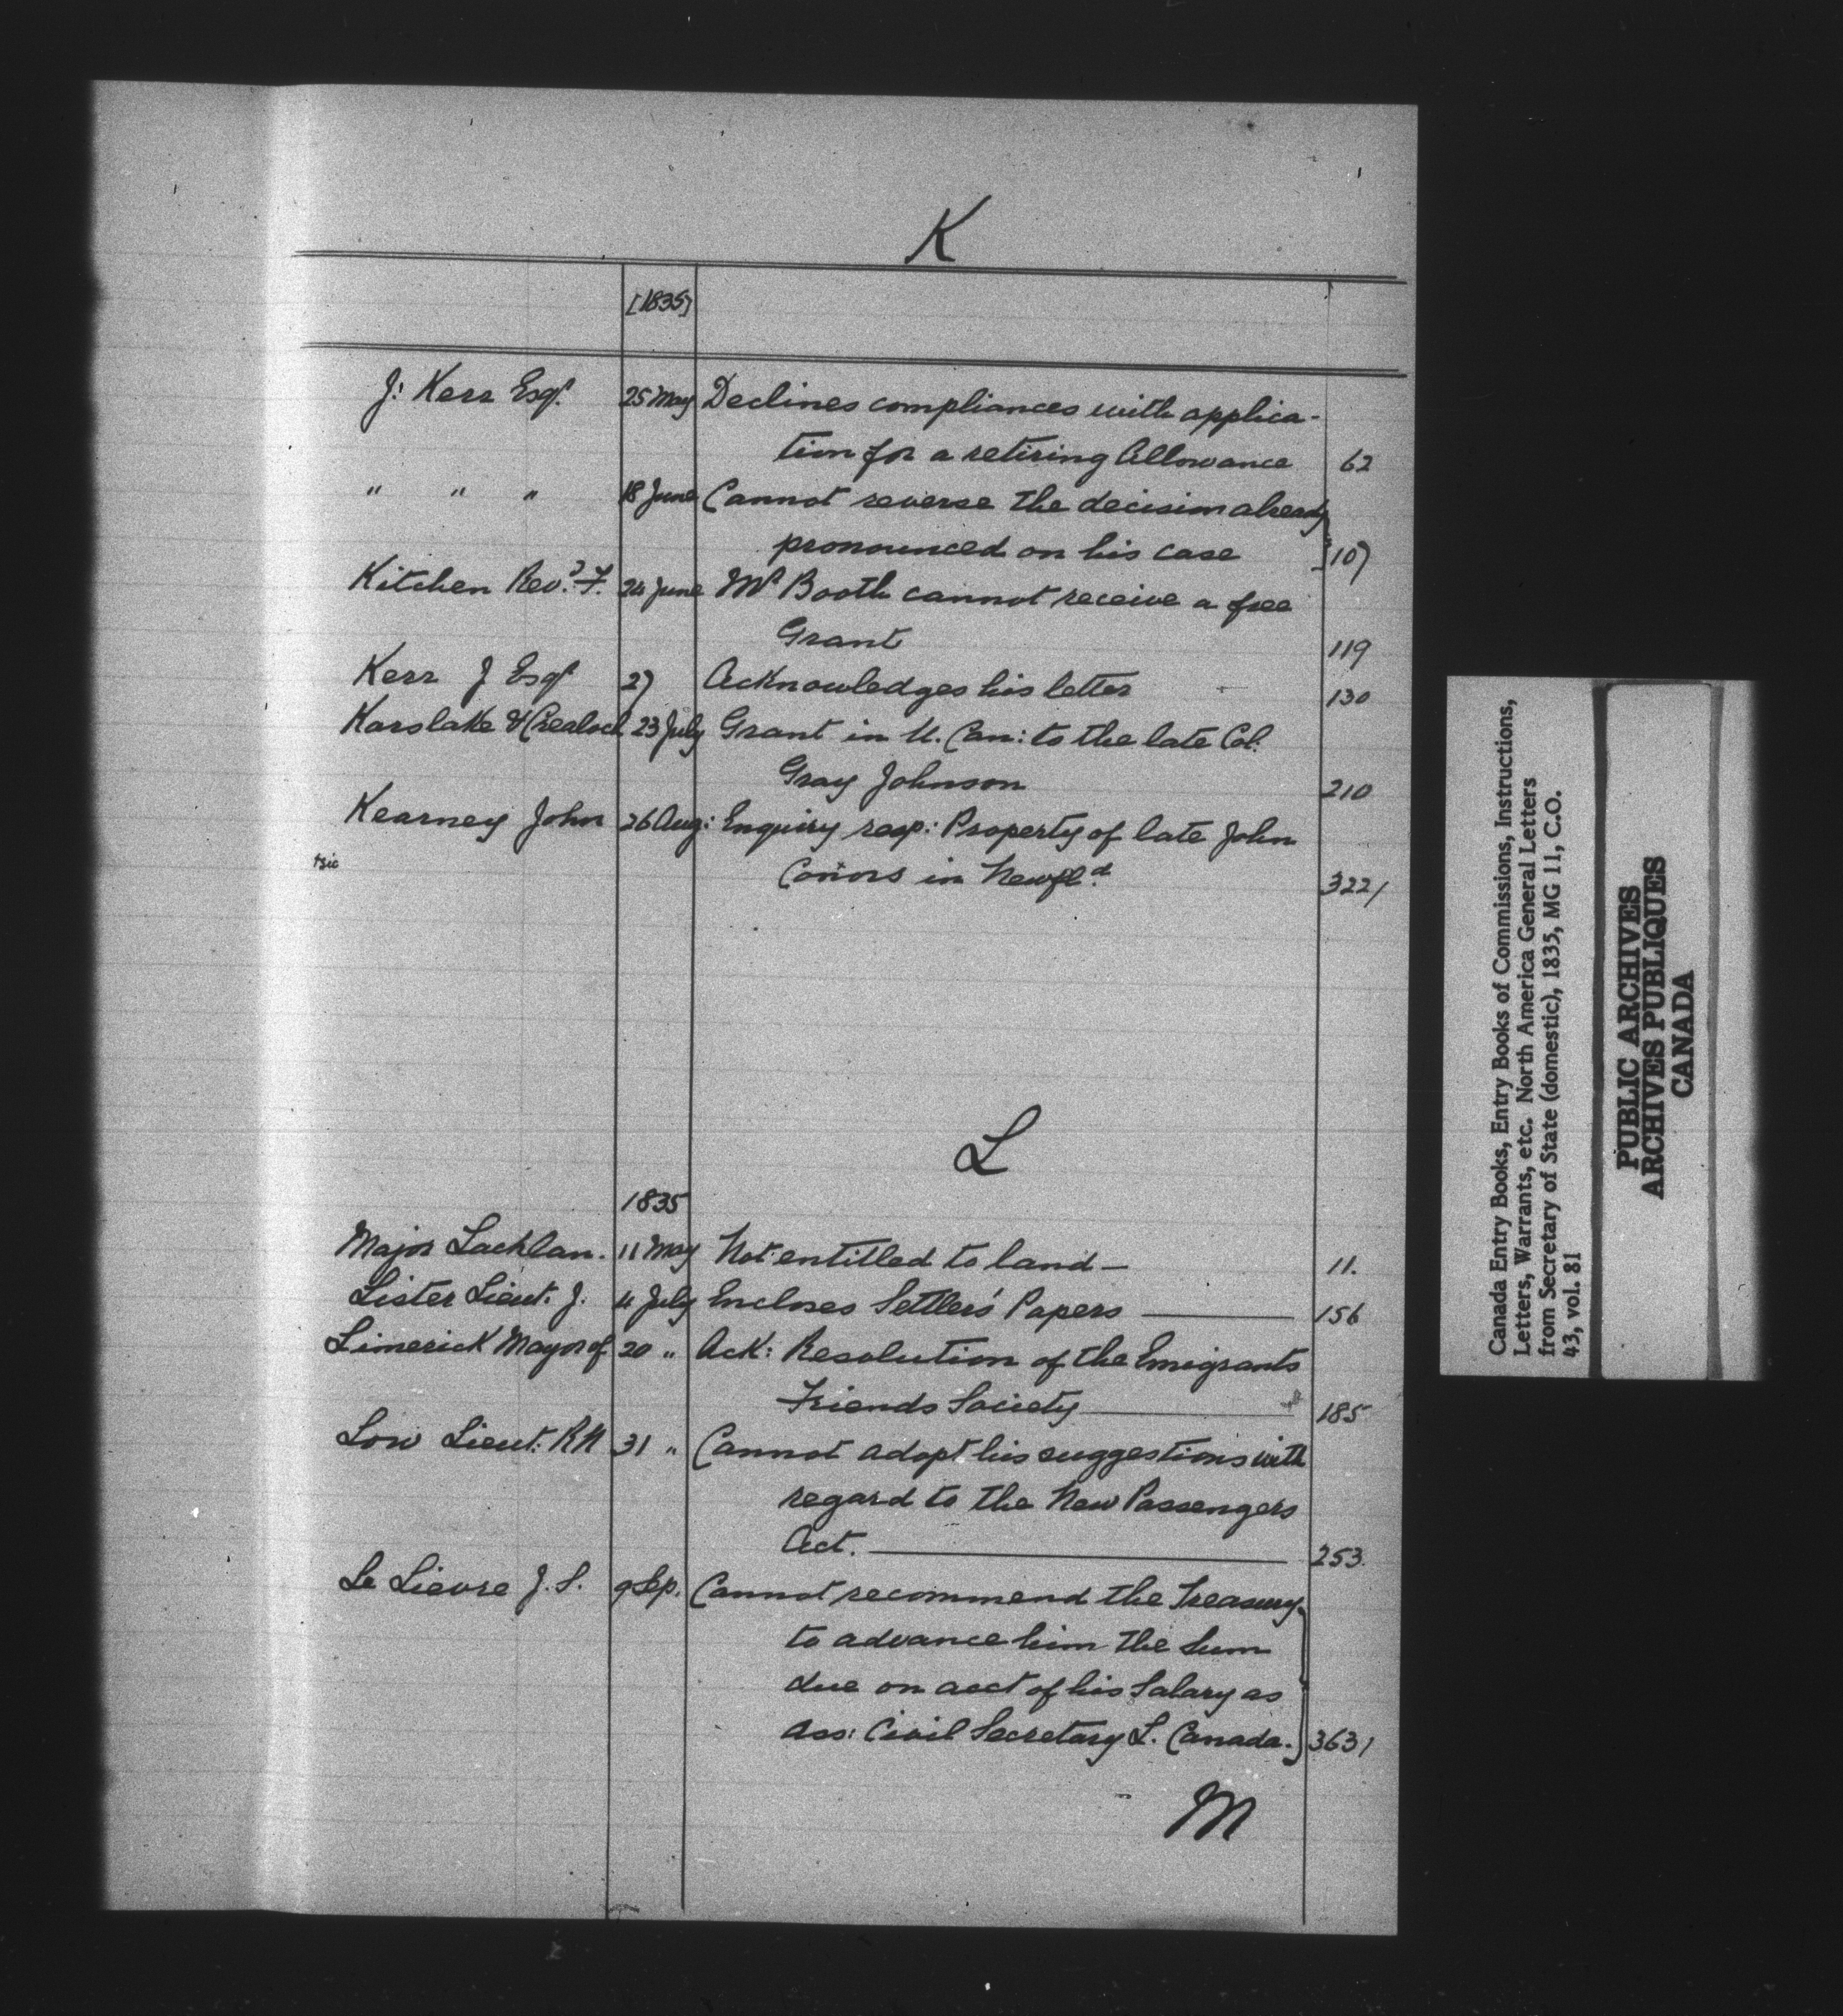 K
[1835]
J: Kerr Esqr. 25 May Declines compliances with applica-
tion for a retiring Allowance 62
" " " 18 June Cannot reverse the decision already
pronounced on his case 107
Kitchen Revd. F. 24 June Mr Booth cannot receive a free
Grant 119
Kerr J Esqr 27 Acknowledges his letter 130
Karslake & Crealock 23 July Grant in U. Can: to the late Col.
Gray Johnson 210
Kearney John 26 Aug: Enquiry resp: Property of late John
sic Conors in Newfld. 322/
L
1835
Major Lachlan. 11 May Not entitled to land — 11.
Lister Lieut. J. 4 July Encloses Settlers' Papers — 156
Limerick Mayor of 20 " Ack: Resolution of the Emigrants
Friends Society — 185
Low Lieut: RN 31 " Cannot adopt his suggestions with
regard to the New Passengers
Act. — 253.
Le Lievre J. S. 9 Sep. Cannot recommend the Treasury
to advance him the Sum
due on acct of his Salary as
Ass: Civil Secretary L. Canada. 363/
M
Canada Entry Books, Entry Books of Commissions, Instructions,
Letters, Warrants, etc. North America General Letters
from Secretary of State (domestic), 1835, MG 11, C.O.
43, vol. 81
PUBLIC ARCHIVES
ARCHIVES PUBLIQUES
CANADA